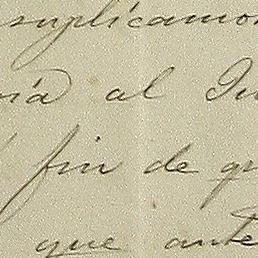 suplicamos
al
fin de
que ante